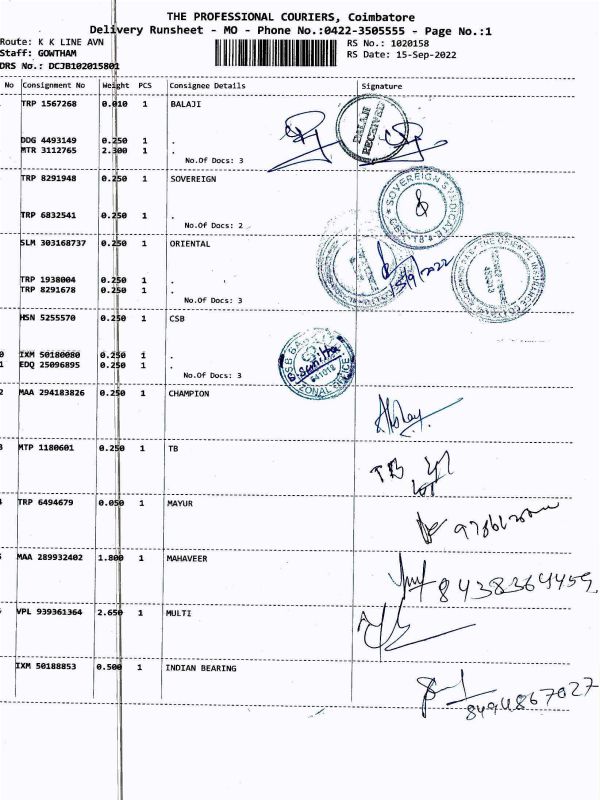 THE PROFESSIONAL COURIERS, Coimbatore
Delivery Runsheet - MO - Phone No.:0422-3505555 - Page No.:1
Route: K K LINE AVN
RS No.: 1020158
Staff: GOWTHAM
RS Date: 15-Sep-2022
DRS No.: DCJB102015801
No Consignment No Weight PCS Consignee Details Signature
TRP 1567268 0.010 1 BALAJI
BALAJI
RECEIVED
DDG 4493149 0.250 1 .
MTR 3112765 2.300 1 .
No.Of Docs: 3
TRP 8291948 0.250 1 SOVEREIGN
SOVEREIGN SYNDICATE
TRP 6832541 0.250 1 .
No.Of Docs: 2
SLM 303168737 0.250 1 ORIENTAL
THE ORIENTAL INSURANCE
15/9/2022
TRP 1938004 0.250 1 .
TRP 8291678 0.250 1 .
No.Of Docs: 3
HSN 5255570 0.250 1 CSB
ZONAL OFFICE
0 IXM 50180080 0.250 1 .
1 EDQ 25096895 0.250 1 .
No.Of Docs: 3
2 MAA 294183826 0.250 1 CHAMPION
Akshay
3 MTP 1180601 0.250 1 TB
TB
4 TRP 6494679 0.050 1 MAYUR
5 MAA 289932402 1.800 1 MAHAVEER
8438364459
VPL 939361364 2.650 1 MULTI
IXM 50188853 0.500 1 INDIAN BEARING
8494867027